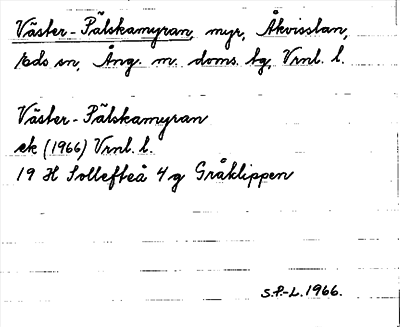 Väster-Pälskamyran, myr, Åkvisslan,
Eds sn, Ång. m. doms. bg, Vrnl. l.
Väster-Pälskamyran
ek (1966) Vrnl. l.
19 H Sollefteå 4 g Gråklippen
S.P.-L. 1966.